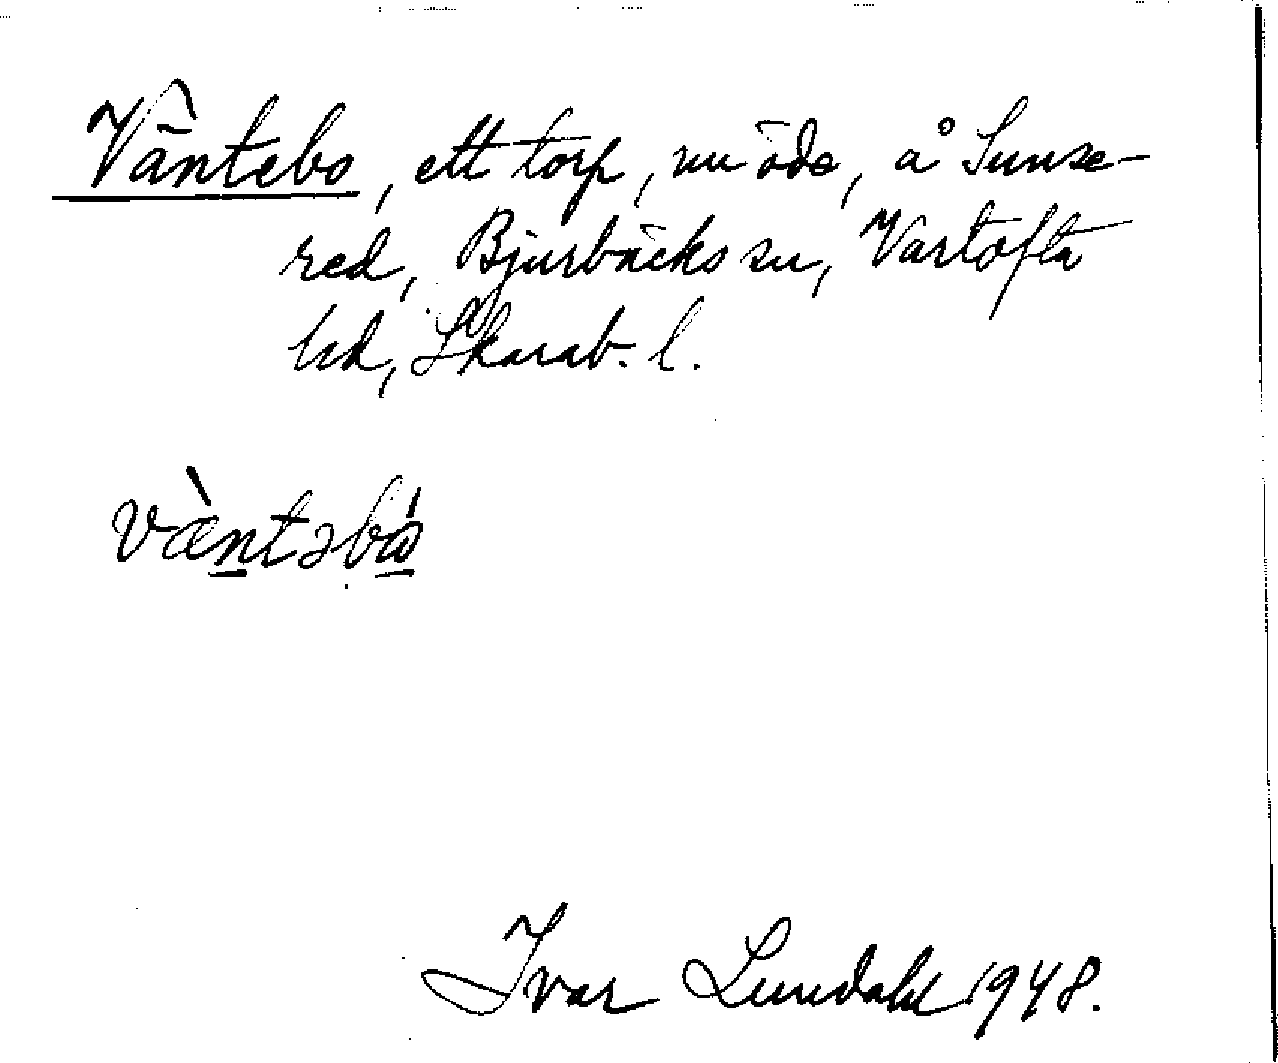 Väntebo, ett torp, nu öde, å Sunse-
red, Bjurbäcks sn, Vartofta
hd, Skarab. l.
væ̀ntəbó
Ivar Lundahl 1948.